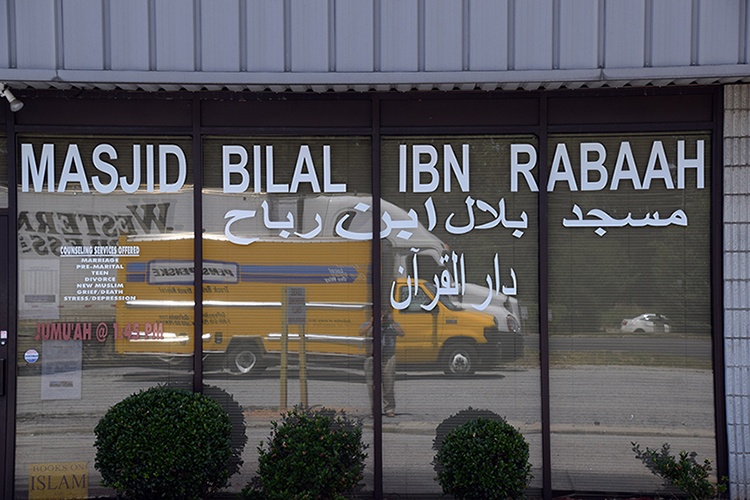 MASJID BILAL IBN RABAAH
مسجد بلال ابن رباح
دار القرآن
COUNSELING SERVICES OFFERED
MARRIAGE
PRE-MARITAL
TEEN
DIVORCE
NEW MUSLIM
GRIEF/DEATH
STRESS/DEPRESSION
JUMU'AH @ 1:45 PM
WESTERN
PENSKE
BOOKS ON
ISLAM